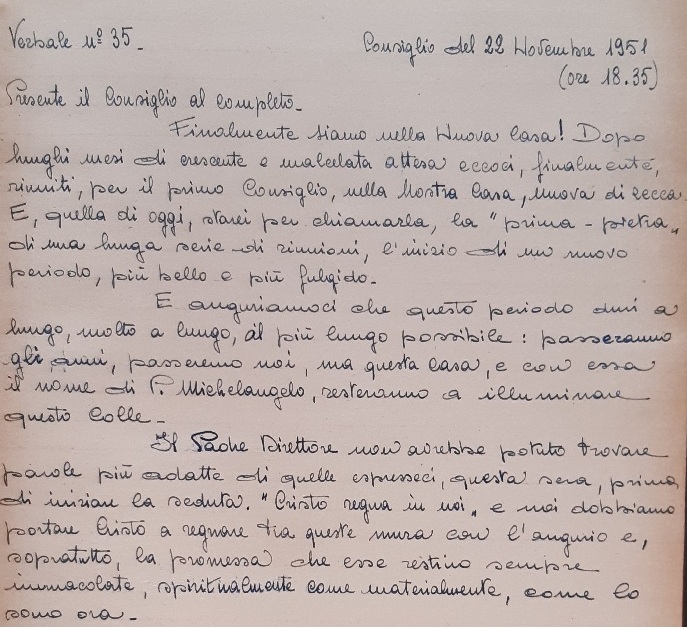 Verbale nº 35_
Consiglio del 22 Novembre 1951
(ore 18.35)
Presente il Consiglio al completo_
Finalmente siamo nella Nuova Casa! Dopo
lunghi mesi di crescente e malcelata attesa eccoci, finalmente,
riuniti, per il primo Consiglio, nella Nostra Casa, nuova di zecca.
E, quella di oggi, starei per chiamarla, la "prima-pietra"
di una lunga serie di riunioni, l'inizio di un nuovo
periodo, più bello e più fulgido_
E auguriamoci che questo periodo duri a
lungo, molto a lungo, il più lungo possibile: passeranno
gli anni, passeremo noi, ma questa Casa, e con essa
il nome di P. Michelangelo, resteranno a illuminare
questo Colle_
Il Padre Direttore non avrebbe potuto trovare
parole più adatte di quelle espresseci, questa sera, prima
di iniziare la seduta. "Cristo regna in noi" e noi dobbiamo
portare Cristo a regnare tra queste mura con l'augurio e,
sopratutto, la promessa che esse restino sempre
immacolate, spiritualmente come materialmente, come lo
sono ora_